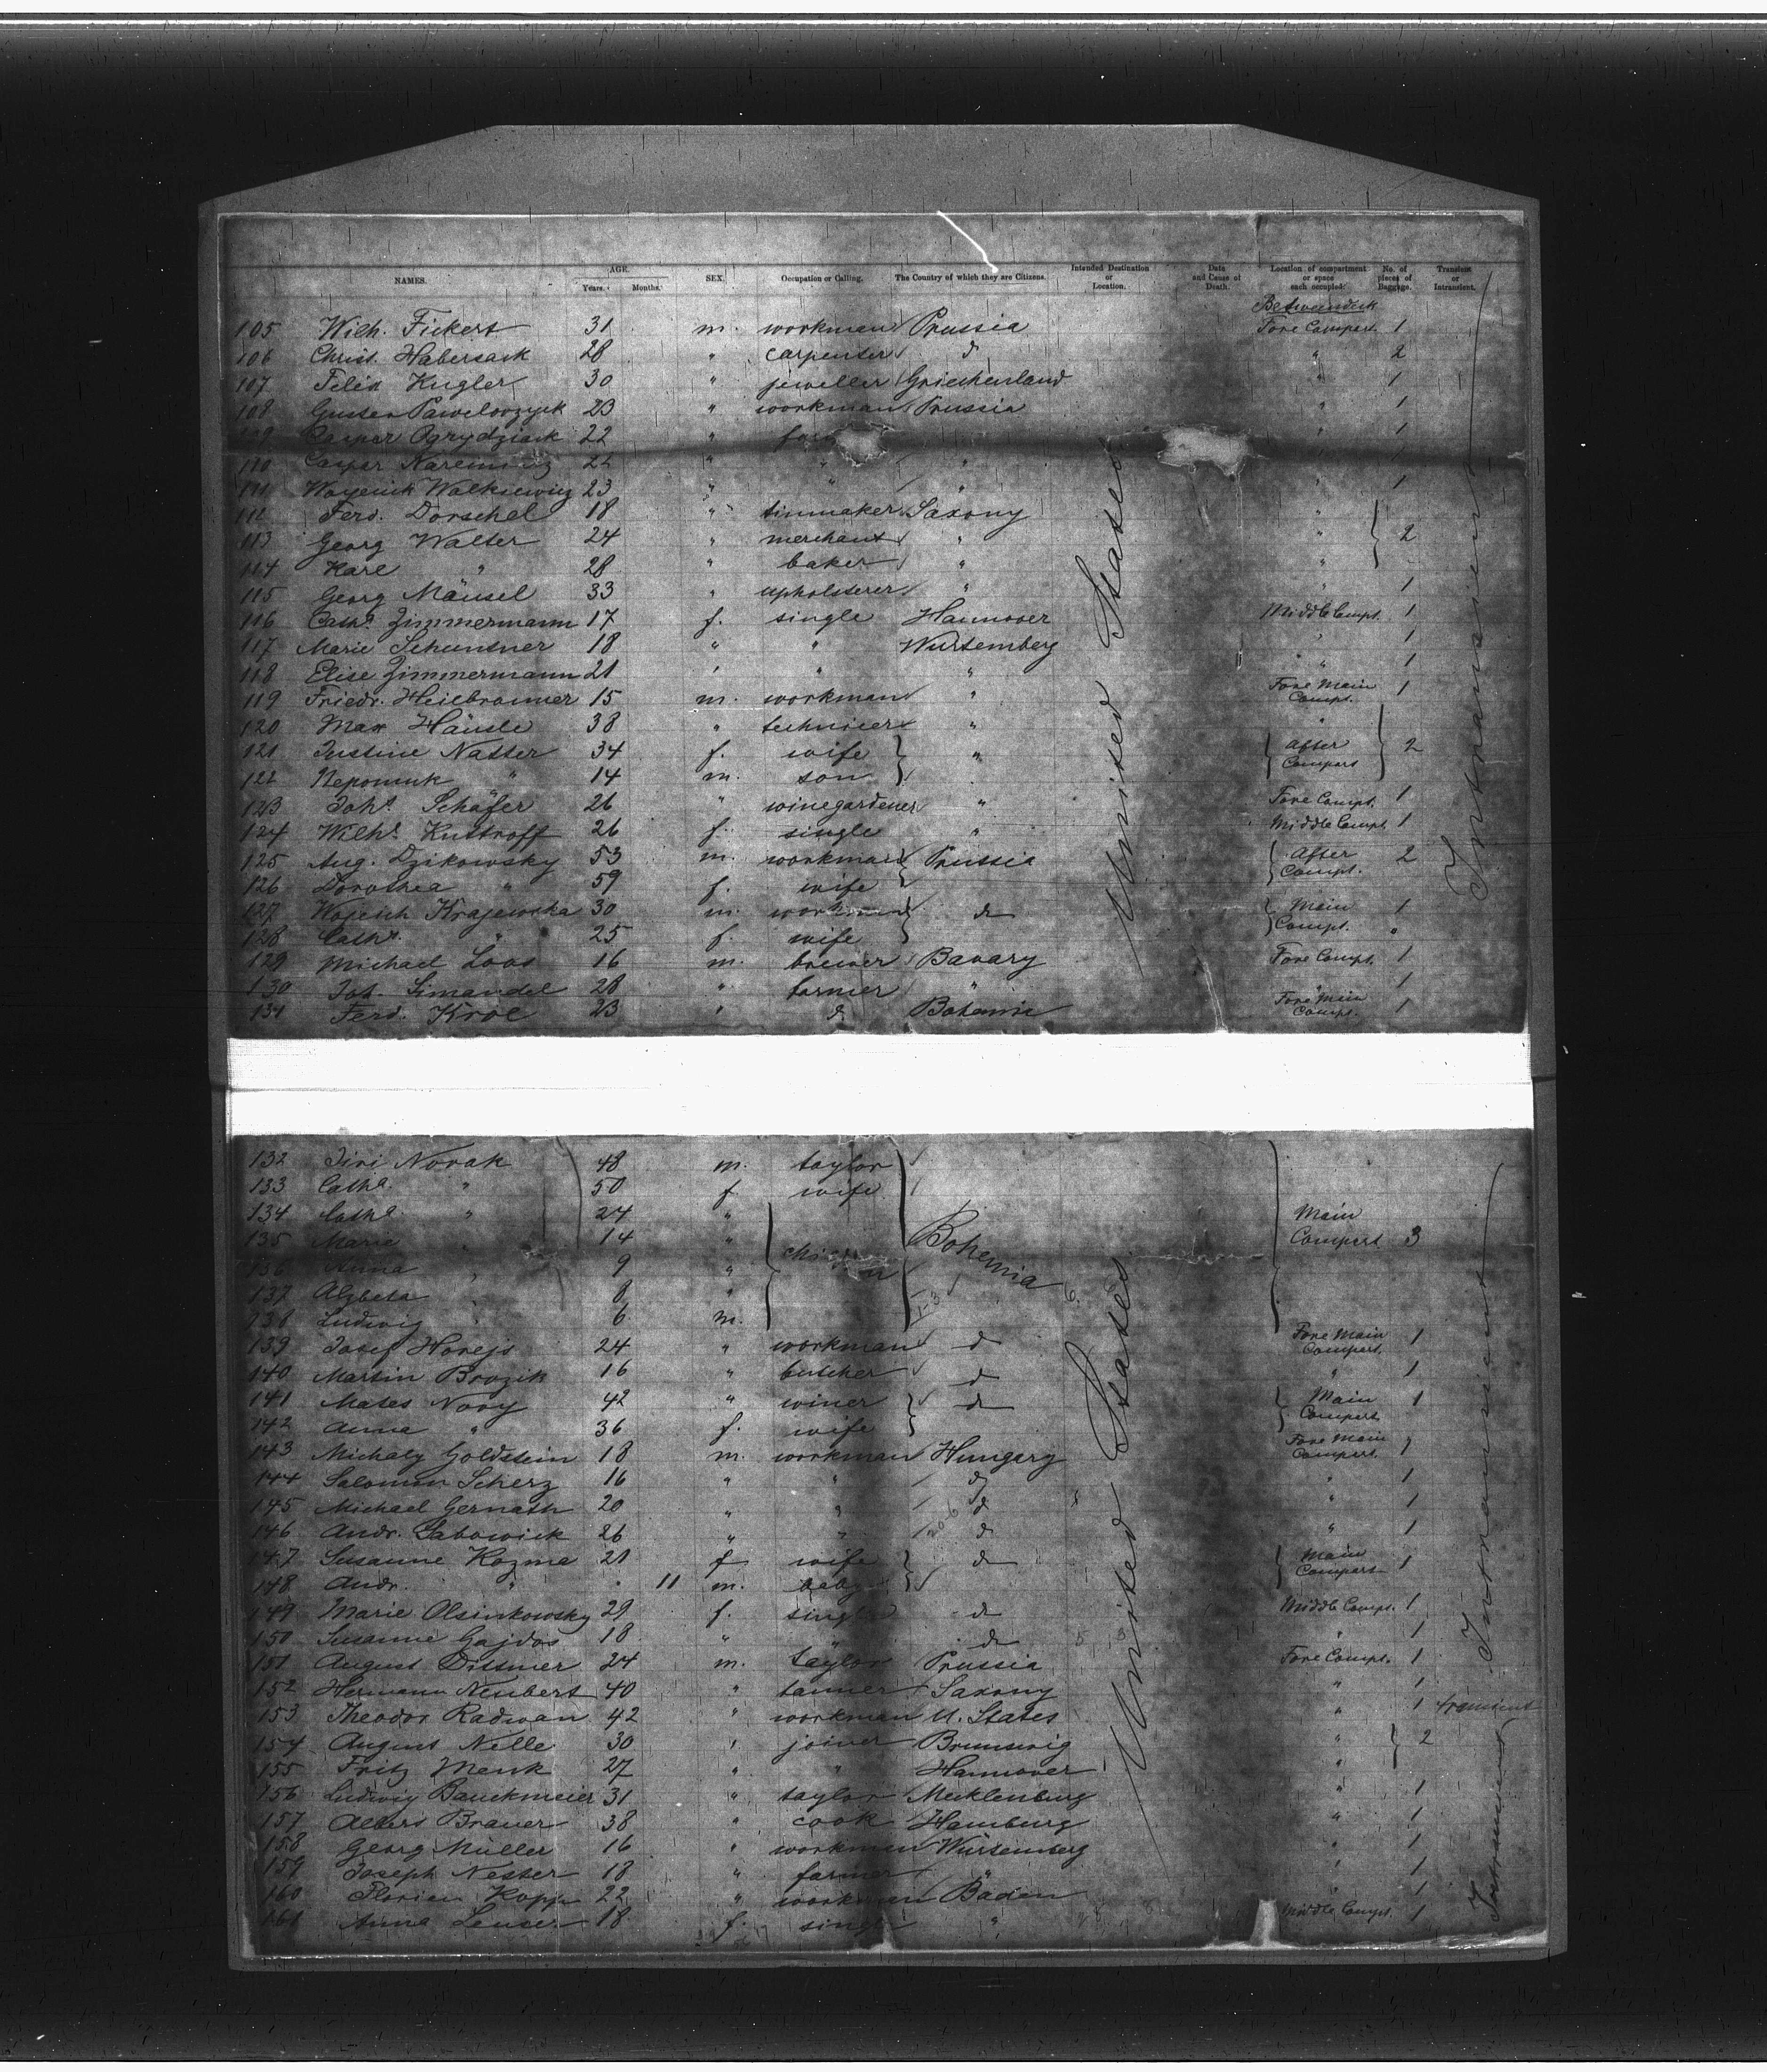 NAMES. AGE. Years. Months. SEX. Occupation or Calling. The Country of which they are Citizens. Intended Destination or Location. Date and Cause of Death. Location of compartment or space each occupied. No. of pieces of Baggage. Transient or Intransient.
Betweendeck
105 Wilh. Fickert 31 m. workman Prussia Fore Compart. 1
106 Christ. Habersack 28 " carpenter d " 2
107 Felix Kugler 30 " jeweller Griechenland " 1
108 Gustav Pawelovzyck 23 " workman Prussia " 1
109 Caspar Ogrydziack 22 " " 1
110 Caspar 22 " " "
111 Walkiewicz 23 " " " " 1
112 Ferd. Dorschel 18 " tinmaker Saxony "
113 Georg Walter 24 " merchant " " 2
114 Karl " 28 " baker " "
115 Georg Mäusel 33 " upholsterer " " 1
116 Catha. Zimmermann 17 f. single Hannover Middle Compt. 1
117 Marie 18 " " Wurtemberg " 1
118 Elise Zimmermann 21 " " " " 1
119 Friedr. Heilbronner 15 m. workman " Fore Main Compt. 1
120 Max Häusle 38 " technicer " "
121 Justine Natter 34 f. wife " After Compart 2
122 Nepomuk " 14 m. son
123 Joha. Schäfer 26 " winegardener " Fore Compt. 1
124 Wilha. Kuttroff 26 f. single " Middle Compt. 1
125 Aug. Dzikowsky 53 m. workman Prussia After Compt. 2
126 Dorothea " 59 f. wife
127 Wojciech Krajewska 30 m. workman do Main Compt. 1
128 Catha. " 25 f. wife "
129 Michael Loos 16 m. brewer Bavary Fore Compt. 1
130 Joh. Simandel 28 " farmer " " 1
131 Ferd. Krol 23 " d Bohemia Fore Main Compt. 1
United States
Intransient
132 Jiri Novak 48 m. taylor
133 Catha. " 50 f wife
134 Catha. " 24 " Main
135 Marie " 14 " children Bohemia Compart 3
136 Anna " 9 "
137 Alzbeta " 8 "
138 Ludwig " 6 m.
139 Josef Horejs 24 " workman d Fore Main Compart. 1
140 Martin Brozik 16 " butcher d " 1
141 Mates Novy 42 " winer do Main Compart 1
142 Anna " 36 f. wife
143 Michaly Goldstein 18 m. workman Hungary Fore Main Compart. 1
144 Salomon Scherz 16 " " d " 1
145 Michael Gernath 20 " " d " 1
146 Andr. Sabowick 26 " " d " 1
147 Susanne Kozma 21 f wife do Main Compart 1
148 Andr. " " 11 m. baby
149 Marie Olsinkowsky 29 f. single do Middle Compt. 1
150 Susanne Gajdos 18 " " do " 1
151 August Dittmer 24 m. taylor Prussia Fore Compt. 1
152 Hermann Neubert 40 " tanner Saxony " 1
153 Theodor Radwan 42 " workman U. States " 1 transient
154 August Nelle 30 " joiner Brunswig " 2
155 Fritz Menk 27 " " Hannover "
156 Ludwig Bauckmeier 31 " taylor Mecklenburg " 1
157 Albert Brauer 38 " cook Hamburg " 1
158 Georg Müller 16 " workman Würtemberg " 1
159 Joseph Nester 18 " farmer " " 1
160 Florian Kopp 22 " workman Baden " 1
161 Anna 18 f. single " Middle Compt. 1
United States
Intransient
Intransient